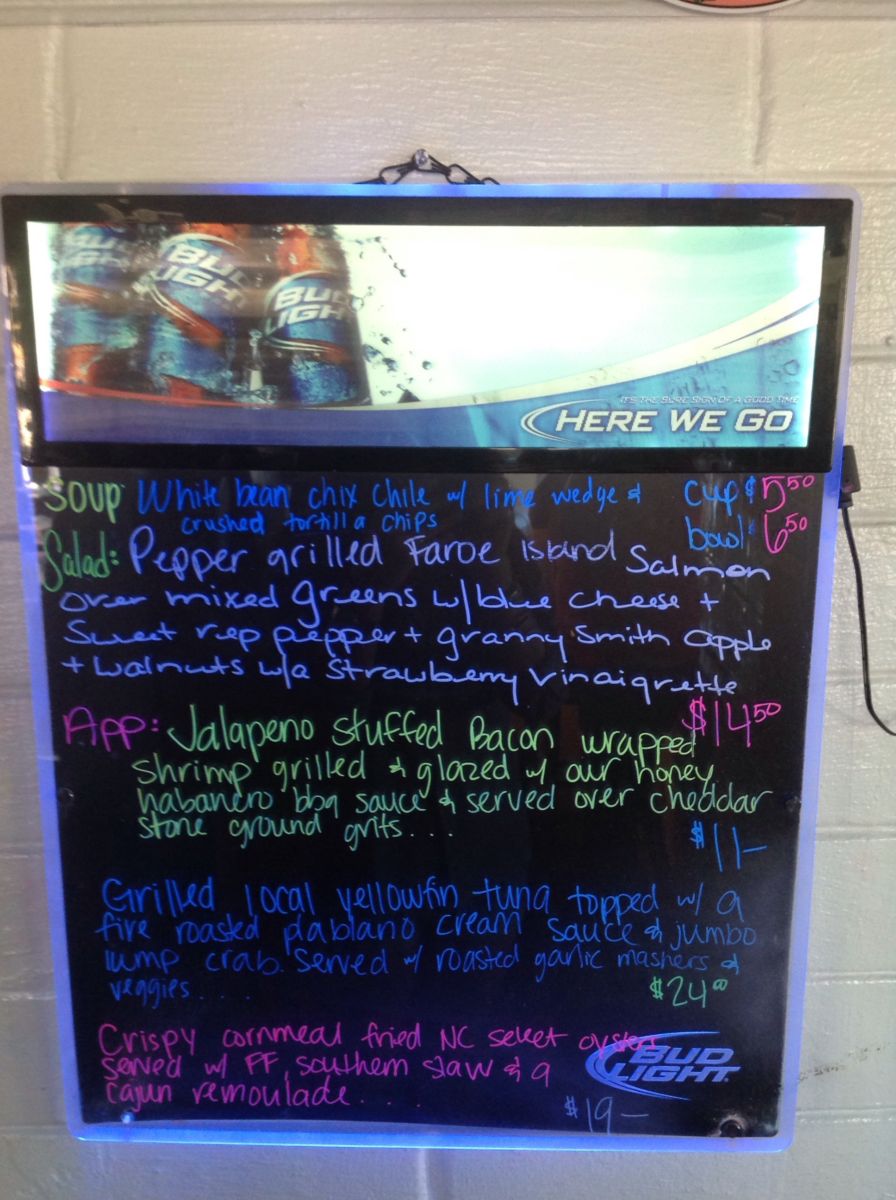 BUD LIGHT
BUD LIGHT
BUD LIGHT
IT'S THE SURE SIGN OF A GOOD TIME
HERE WE GO
SOUP: White bean chix chile w/ lime wedge & cup $5.50
crushed tortilla chips bowl: 6.50
Salad: Pepper grilled Faroe Island Salmon
over mixed greens w/ blue cheese +
Sweet rep piepper + granny Smith apple
+ walnuts w/a Strawberry Vinaigrette
$14.50
App: Jalapeno stuffed Bacon wrapped
shrimp grilled & glazed w/ our honey
habanero bbq sauce & served over cheddar
stone ground grits...
$11-
Grilled local yellowfin tuna topped w/ a
fire roasted plablano cream sauce & jumbo
lump crab. Served w/ roasted garlic mashers &
veggies....
$24.00
Crispy cornmeal fried NC select oysters
served w/ FF, southern slaw & a
cajun remoulade...
BUD LIGHT
$19-